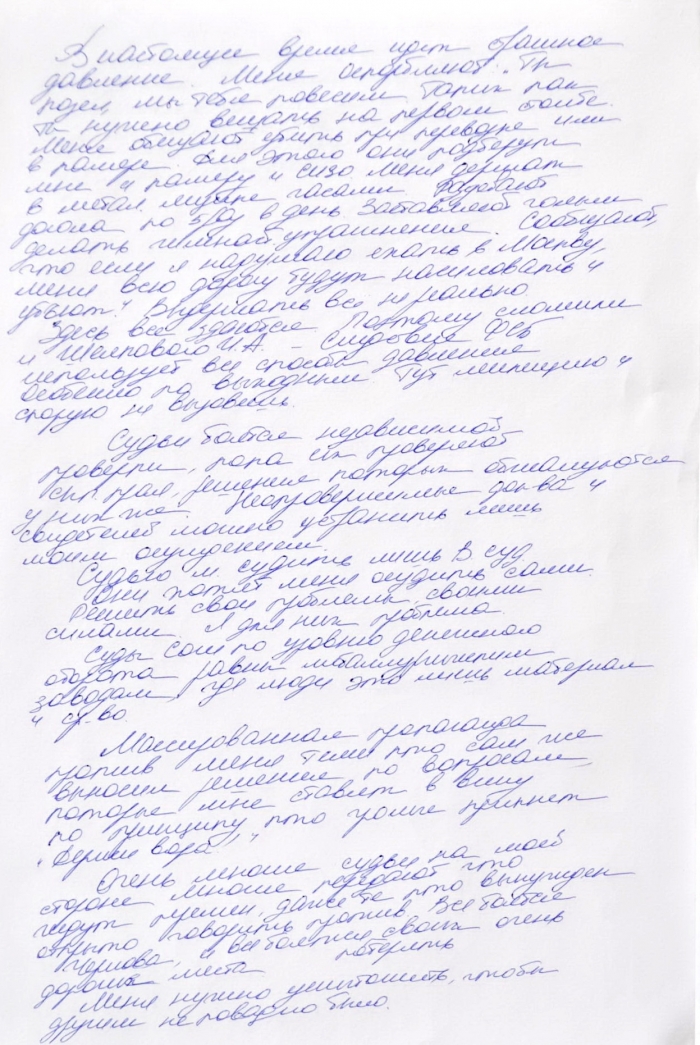 В настоящее время идет страшное
давление. Меня оскорбляют: „Ты
козел, мы тебя повесим. Таких как
ты нужно вешать на первом столбе.
Меня обещают убить при переводе или
в камере. Для этого они подберут
мне и камеру и сизо. Меня держат
в метал. часами. Раздевают
догола по 5 раз в день. Заставляют голым
делать гимнаст. упражнения. Сообщают,
что если я надумаю ехать в Москву,
меня всю дорогу будут насиловать и
убьют." Выдержать все не реально.
Здесь все сдаются. Поэтому сломили
и И.А. – Следствие ФСБ
использует все способы давления
Особенно по выходным. Тут милицию и
скорую не вызовешь.
Судьи боятся независимой
проверки, пока их проверяют
суд. края, решения которых обжалуются
у них же. Неопровержимые док-ва и
свидетелей можно устранить лишь
моим осуждением.
Судью м. судить лишь В. суд.
Они хотят меня осудить сами.
Решить свои проблемы своими
силами. Я для них проблема.
Суды Сочи по уровню денежного
оборота равны металлургическим
заводам, где люди это лишь материал
и ср-во.
Массированная пропаганда
против меня теми кто сам же
выносил решения по вопросам,
которые мне ставят в вину
по принципу, кто громче крикнет
„Держи вора!"
Очень многие судьи на моей
стороне многие передают что
ждут времен, даже те кто вынужден
открыто говорить против. Все боятся
Чернова, и все боятся своих очень
дорогих мест потерять
Меня нужно уничтожить, чтобы
другим не повадно было.